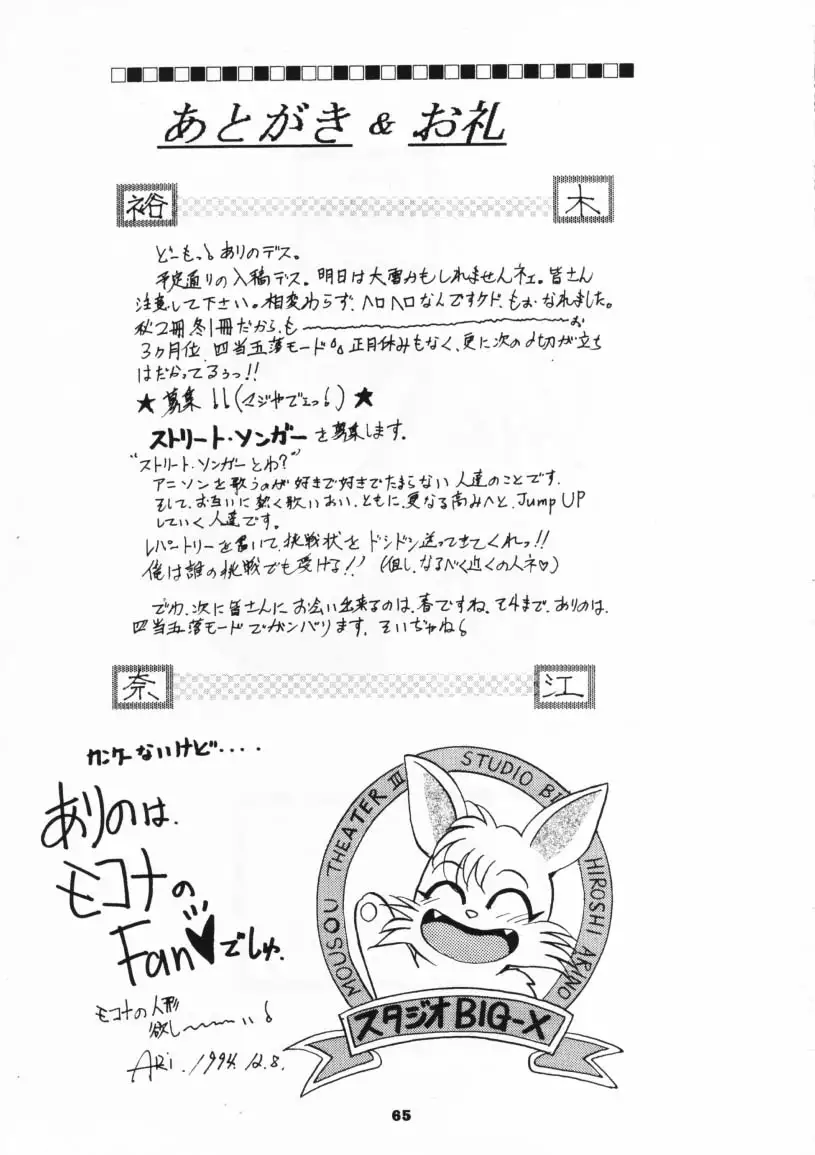 あとがき & お礼
裕 木
どーもっ!ありのデス。
予定通りの入稿デス。明日は大雪かもしれませんネェ。皆さん
注意して下さい。相変わらず、ヘロヘロなんですケド、もぉなれました。
秋2冊冬1冊だから、も〜〜〜〜〜お
3ヵ月位、四当五落モード。正月休みもなく、更に次の〆切が立ち
はだかってるぅっ!!
★募集!!(マジやでェっ!)★
ストリート・ソンガーを募集します。
"ストリート・ソンガーとわ?"
アニソンを歌うのが好きで好きでたまらない人達のことです。
そして、お互いに熱く歌いあい、ともに、更なる高みへと、Jump UP
していく人達です。
レパートリーを書いて、挑戦状をドシドシ送ってきてくれっ!!
俺は誰の挑戦でも受ける!!(但し、なるべく近くの人ネ♡)
でわ、次に皆さんにお会い出来るのは、春ですね。それまで、ありのは、
四当五落モードでガンバります。そいぢゃね!
奈 江
カンケーないけど‥‥
ありのは、
モコナの
Fan♥でしゅ。
モコナの人形
欲し〜〜〜い!
ARI. 1994.12.8.
MOUSOU THEATER III
STUDIO BI
HIROSHI ARINO
スタジオBIG-X
65